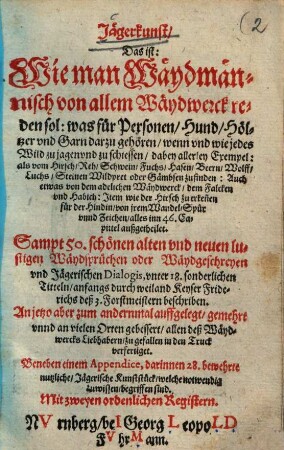 (2
Jägerkunst/
Das ist:
Wie man Wäydmän-
nisch von allem Wäydwerck re-
den sol: was für Personen/ Hund/ Höl-
tzer vnd Garn darzu gehören/ wenn vnd wie jedes
Wild zu jagen vnd zu schiessen/ dabey allerley Exempel:
als vom Hirsch/ Reh/ Schwein/ Fuchs/ Hasen/ Beern/ Wolff/
Luchs/ Steinen Wildpret oder Gämbsen zufinden: Auch
etwas von dem adelichen Wäydwerck/ dem Falcken
vnd Habich: Item wie der Hirsch zu erkeñen
für der Hindin/ von jrem Wandel Spür
vnnd Zeichen/ alles inn 46. Ca-
putel außgetheilet.
Sampt 50. schönen alten vnd neuen lu-
stigen Wäydsprüchen oder Wäydgeschreyen
vnd Jägerischen Dialogis, vnter 18. sonderlichen
Titteln/ anfangs durch weiland Keyser Fride-
richs deß 3. Forstmeistern beschriben.
An jetzo aber zum andernmal auffgelegt/ gemehrt
vnnd an vielen Orten gebessert/ allen deß Wäyd-
wercks Liebhabern/ zu gefallen in den Truck
verfertiget.
Beneben einem Appendice, darinnen 28. bewehrte
nutzliche/ Jägerische Kunststück/ welche notwendig
zuwissen/ begriffen sind.
Mit zweyen ordenlichen Registern.
NVrnberg/ beI Georg LeopoLD
FVhrMann.